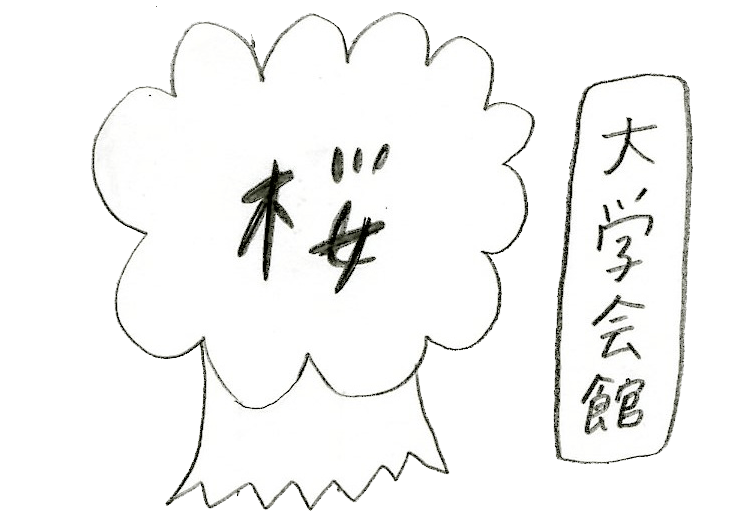 桜
大学会館